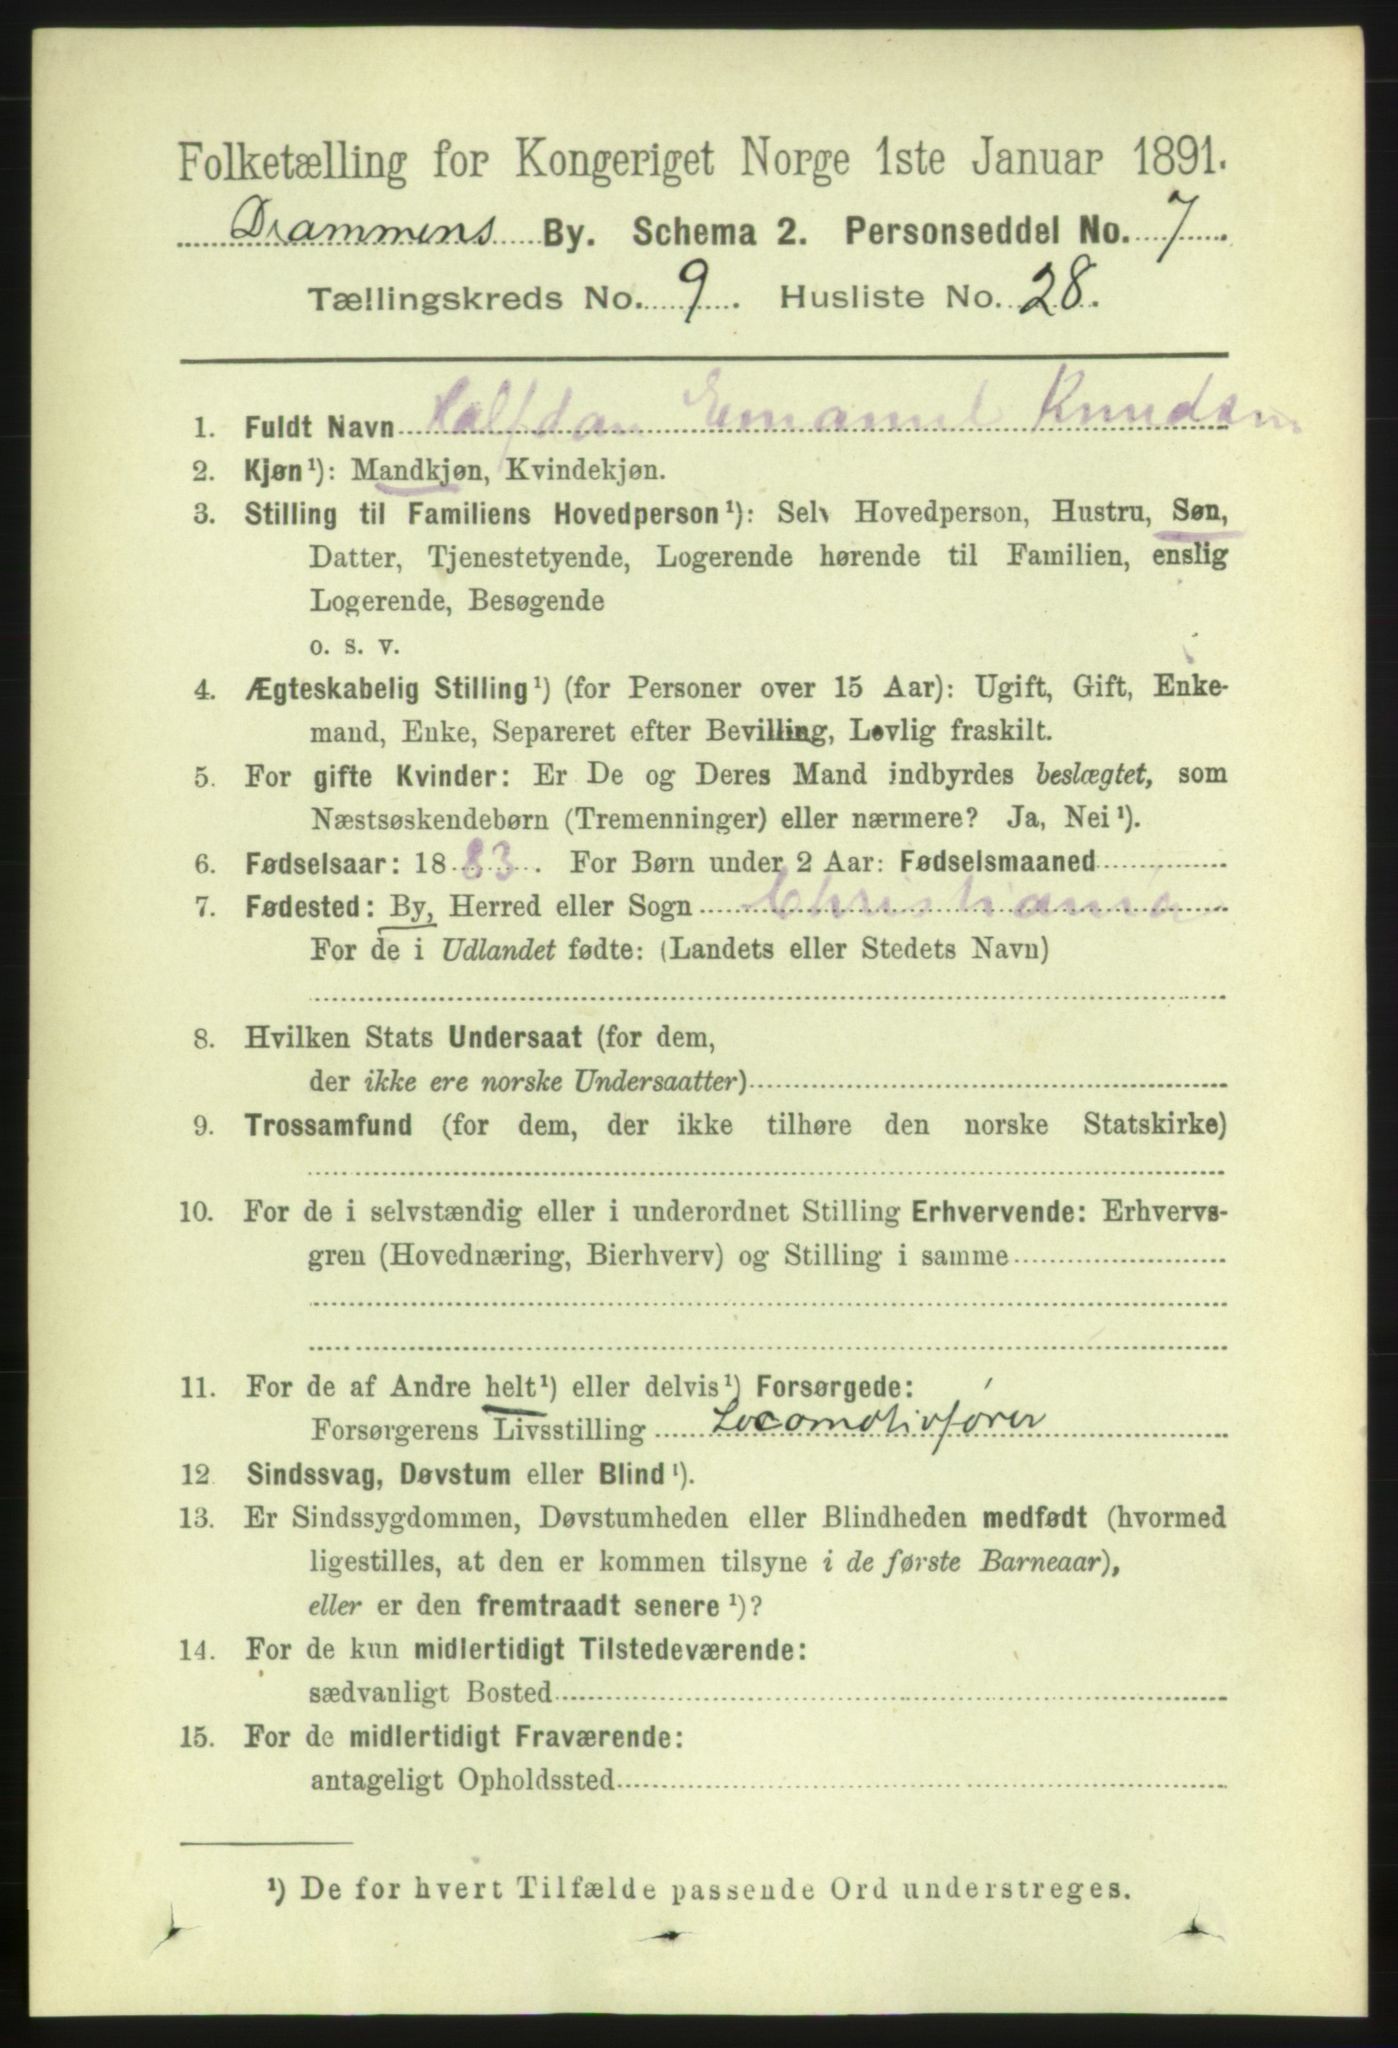 Folketælling for Kongeriget Norge 1ste Januar 1891.
Drammens By. Schema 2. Personseddel No. 7
Tællingskreds No. 9. Husliste No. 28.
1. Fuldt Navn Halfdan Emanuel Knudsen
2. Kjøn¹): Mandkjøn, Kvindekjøn.
3. Stilling til Familiens Hovedperson¹): Selv Hovedperson, Hustru, Søn,
Datter, Tjenestetyende, Logerende hørende til Familien, enslig
Logerende, Besøgende
o. s. v.
4. Ægteskabelig Stilling¹) (for Personer over 15 Aar): Ugift, Gift, Enke-
mand, Enke, Separeret efter Bevilling, Lovlig fraskilt.
5. For gifte Kvinder: Er De og Deres Mand indbyrdes beslægtet, som
Næstsøskendebørn (Tremenninger) eller nærmere? Ja, Nei¹).
6. Fødselsaar: 1883. For Børn under 2 Aar: Fødselsmaaned
7. Fødested: By, Herred eller Sogn Christiania
For de i Udlandet fødte: (Landets eller Stedets Navn)
8. Hvilken Stats Undersaat (for dem,
der ikke ere norske Undersaatter)
9. Trossamfund (for dem, der ikke tilhøre den norske Statskirke)
10. For de i selvstændig eller i underordnet Stilling Erhvervende: Erhvervs-
gren (Hovednæring, Bierhverv) og Stilling i samme
11. For de af Andre helt¹) eller delvis¹) Forsørgede:
Forsørgerens Livsstilling Locomotivfører
12 Sindssvag, Døvstum eller Blind¹).
13. Er Sindssygdommen, Døvstumheden eller Blindheden medfødt (hvormed
ligestilles, at den er kommen tilsyne i de første Barneaar),
eller er den fremtraadt senere¹)?
14. For de kun midlertidigt Tilstedeværende:
sædvanligt Bosted
15. For de midlertidigt Fraværende:
antageligt Opholdssted
¹) De for hvert Tilfælde passende Ord understreges.